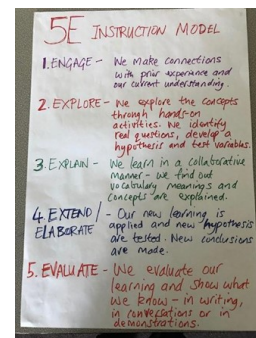 5E INSTRUCTION MODEL
1. ENGAGE - We make connections
with prior experience and
our current understanding.
2. EXPLORE - We explore the concepts
through hands-on
activities. We identify
real questions, develop a
hypothesis and test variables.
3. EXPLAIN - We learn in a collaborative
manner - we find out
vocabulary meanings and
concepts are explained.
4. EXTEND / - Our new learning is
ELABORATE applied and new hypothesis
are tested. New conclusions
are made.
5. EVALUATE - We evaluate our
learning and show what
we know - in writing,
in conversations or in
demonstrations.